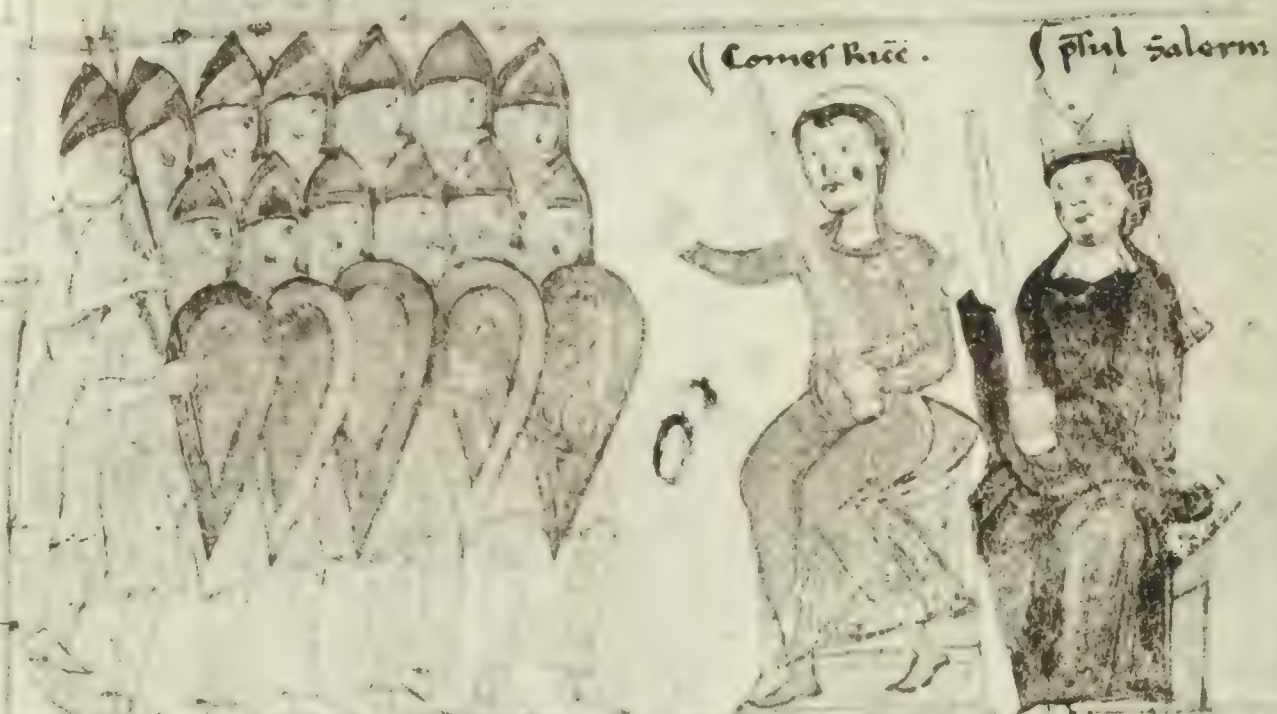 Comeſ Ricc̄.
p̄ſul Salerni